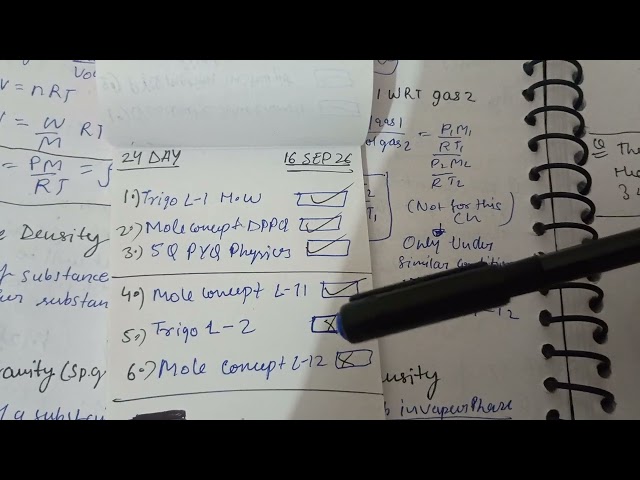 24 DAY 16 SEP 26
1.) Trigo L-1 How
2.) Mole concept DPPQ
3.) 5Q PYQ Physics
4.) Mole concept L-11
5.) Trigo L-2
6.) Mole Concept L-12
V = nRT
W/M RT
= PM/RT =
e Density
of substance
substan
avity (Sp.g
of a substa
WRT gas 2
gas 1
gas 2
= P1M1/RT1
P2M2/RT2
T1
(Not for this Ch)
Only Under
Similar condition
nsity
in vapour Phase
Q The